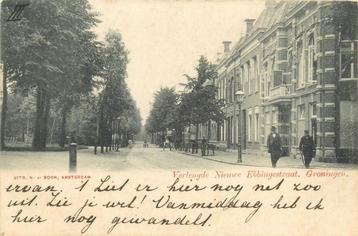 Verlengde Nieuwe Ebbingestraat, Groningen.
UITG. N. J. BOON, AMSTERDAM
ervan. 't Ziet er hier nog net zoo
uit. Zie je wel! Vanmiddag heb ik
hier nog gewandelt.